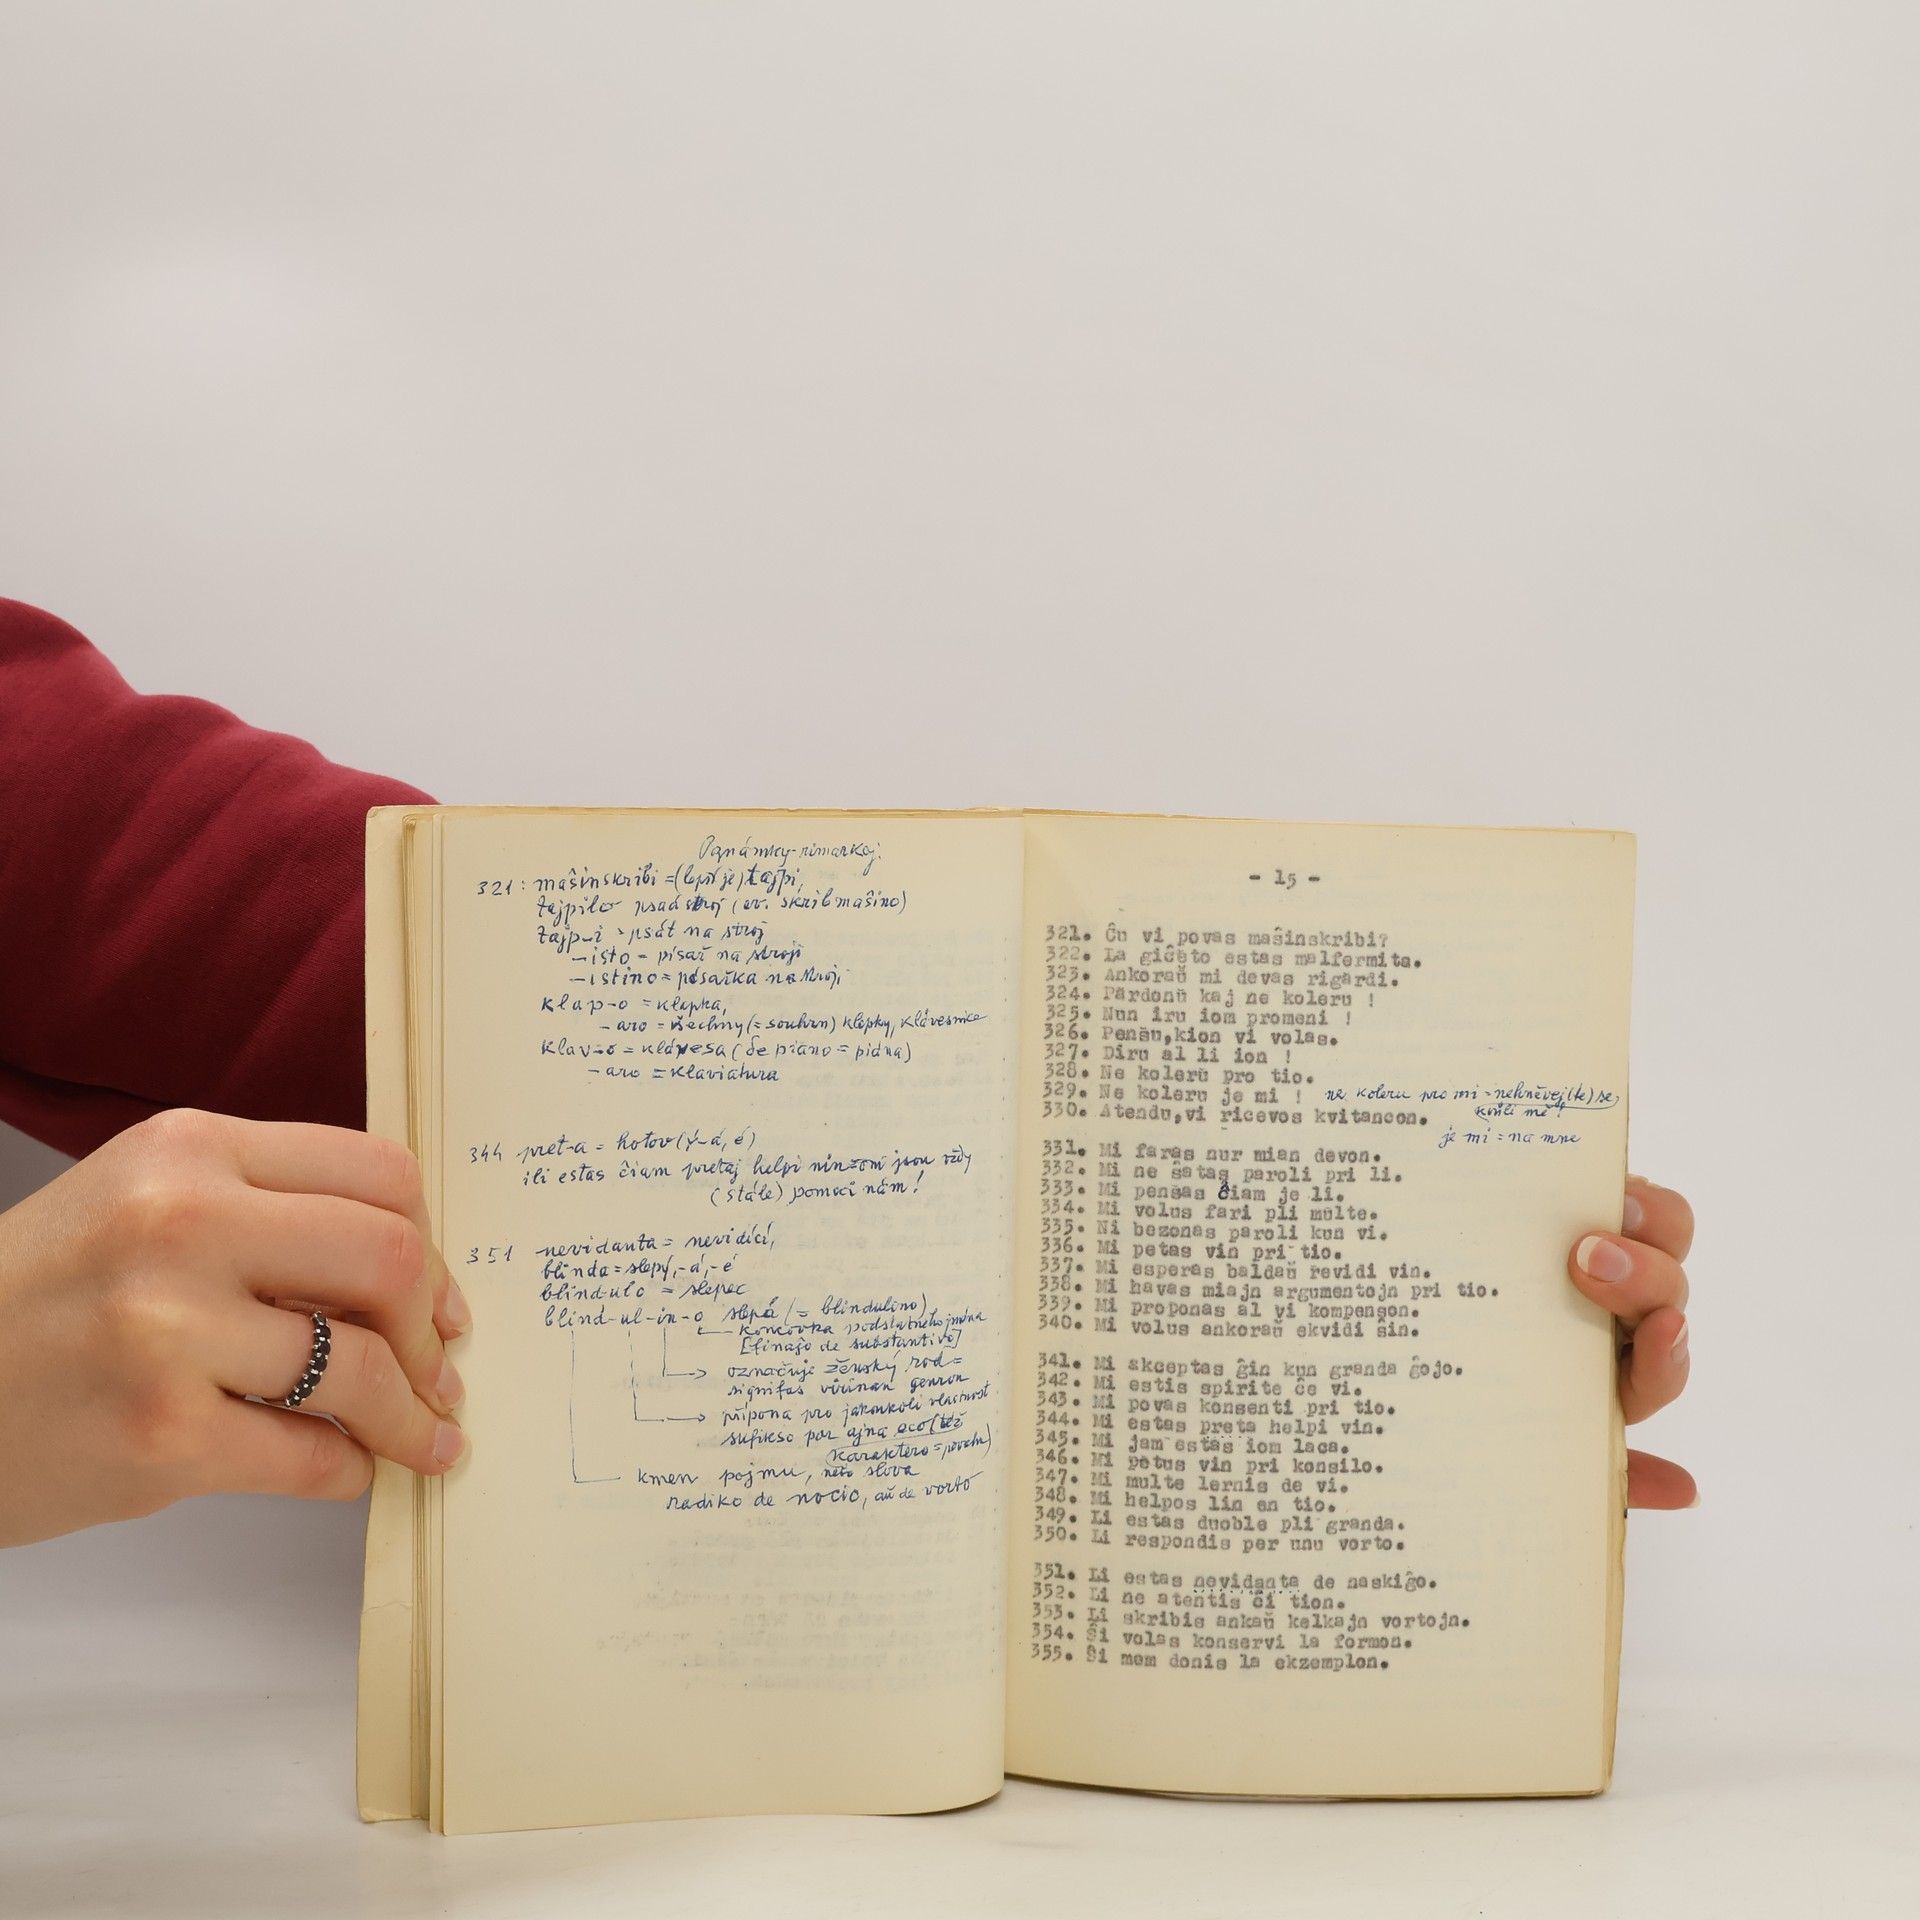 Poznámky-rimarkoj:
321: maŝinskribi = (lepší je) tajpi,
tajpilo psací stroj (ev. skribmaŝino)
tajp-i = psát na stroj
-isto = písař na stroji
-istino = písařka na stroji
klap-o = klapka,
-aro = všechny (= souhrn) klapky, klávesnice
klav-o = klávesa (de piano = piána)
-aro = klaviatura
344 pret-a = hotov (ý-á, é)
ili estas ĉiam pretaj helpi nin = oni jsou vždy
(stále) pomoci nám!
351 nevidanta = nevidící,
blinda = slepý, -á, -é
blind-ulo = slepec
blind-ul-in-o slepá (= blindulino)
koncovka podstatného jména
[finaĵo de substantivo]
označuje ženský rod =
signifas virinan genron
přípona pro jakoukoli vlastnost
sufikso por ajna eco (též
karaktero = povaha)
kmen pojmu, nebo slova
radiko de nocio, aŭ de vorto
- 15 -
321. Ĉu vi povas maŝinskribi?
322. La giĉeto estas malfermita.
323. Ankoraŭ mi devas rigardi.
324. Pardonu kaj ne koleru !
325. Nun iru iom promeni !
326. Pensu,kion vi volas.
327. Diru al li ion !
328. Ne koleru pro tio.
329. Ne koleru je mi ! ne koleru pro mi = nehněvej(te) se,
kvůli mě!
330. Atendu,vi ricevos kvitancon.
je mi = na mne
331. Mi faras nur mian devon.
332. Mi ne ŝatas paroli pri li.
333. Mi pensas ĉiam je li.
334. Mi volus fari pli multe.
335. Ni bezonas paroli kun vi.
336. Mi petas vin pri tio.
337. Mi esperas baldaŭ revidi vin.
338. Mi havas miajn argumentojn pri tio.
339. Mi proponas al vi kompenson.
340. Mi volus ankoraŭ ekvidi ŝin.
341. Mi akceptas ĝin kun granda ĝojo.
342. Mi estis spirite ĉe vi.
343. Mi povas konsenti pri tio.
344. Mi estas preta helpi vin.
345. Mi jam estas iom laca.
346. Mi petus vin pri konsilo.
347. Mi multe lernis de vi.
348. Mi helpos lin en tio.
349. Li estas duoble pli granda.
350. Li respondis per unu vorto.
351. Li estas nevidanta de naskiĝo.
352. Li ne atentis ĉi tion.
353. Li skribis ankaŭ kelkajn vortojn.
354. Ŝi volas konservi la formon.
355. Ŝi mem donis la ekzemplon.